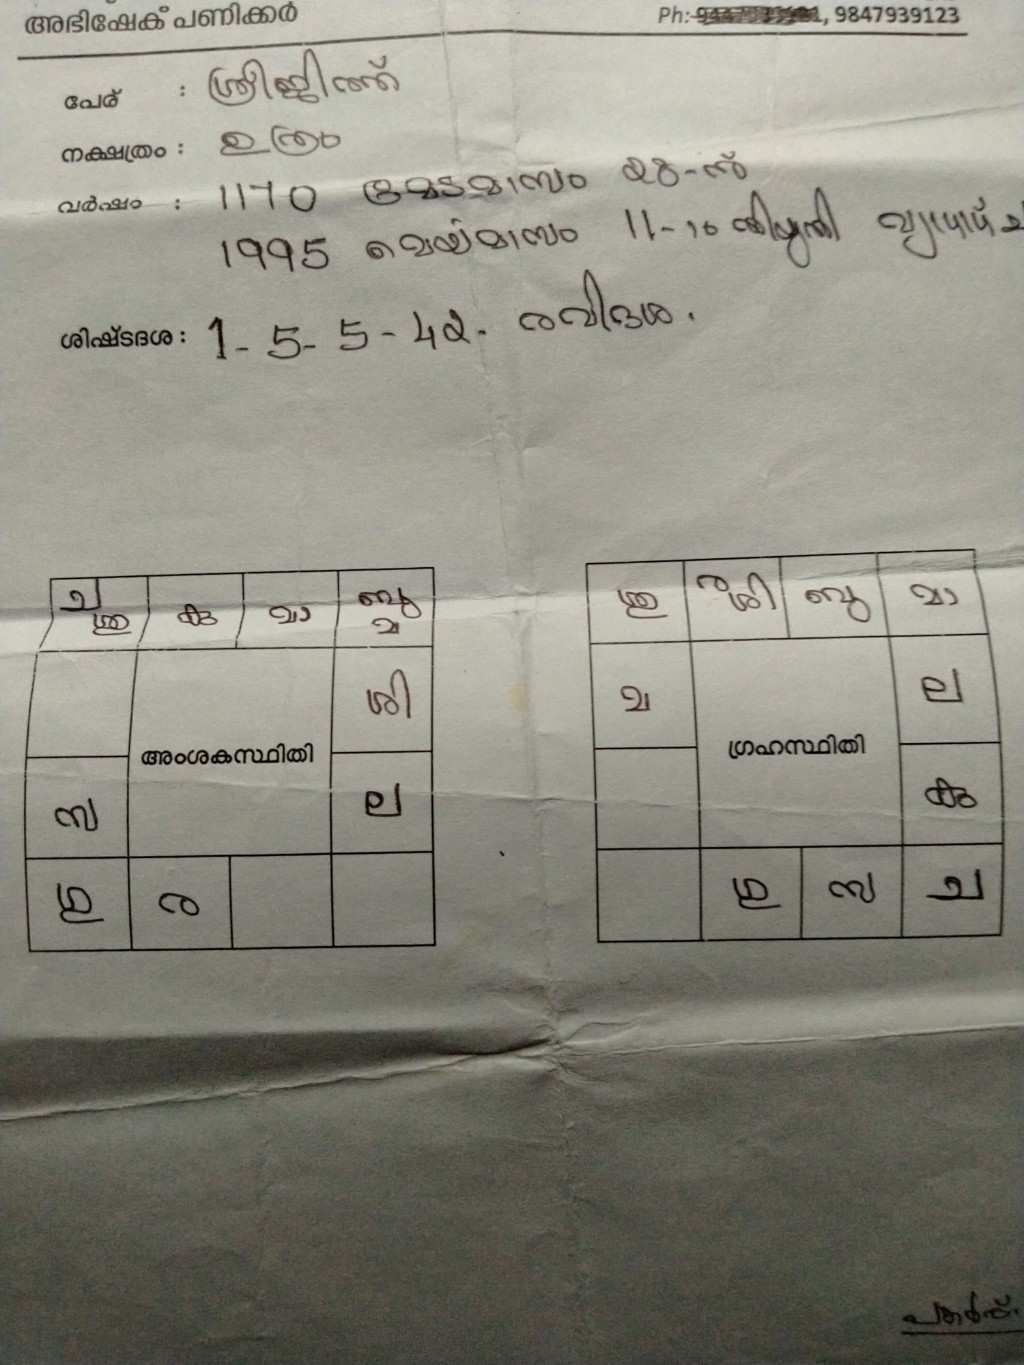 അഭിഷേക് പണിക്കർ Ph:- , 9847939123
പേര് : ശ്രീജിത്ത്
നക്ഷത്രം : ഉത്രം
വർഷം : 1170 മേടമാസം 28-ന്
1995 മെയ്മാസം 11-ാം തിയ്യതി
ശിഷ്ടദശ : 1-5-5-42- രവിദശ.
ച ശു കു മാ ബു മ
ശി
അംശകസ്ഥിതി
സ ല
ഗു ര
ശു ര ശി ബു മാ
മ ല
ഗ്രഹസ്ഥിതി
കു
ഗു സ ച